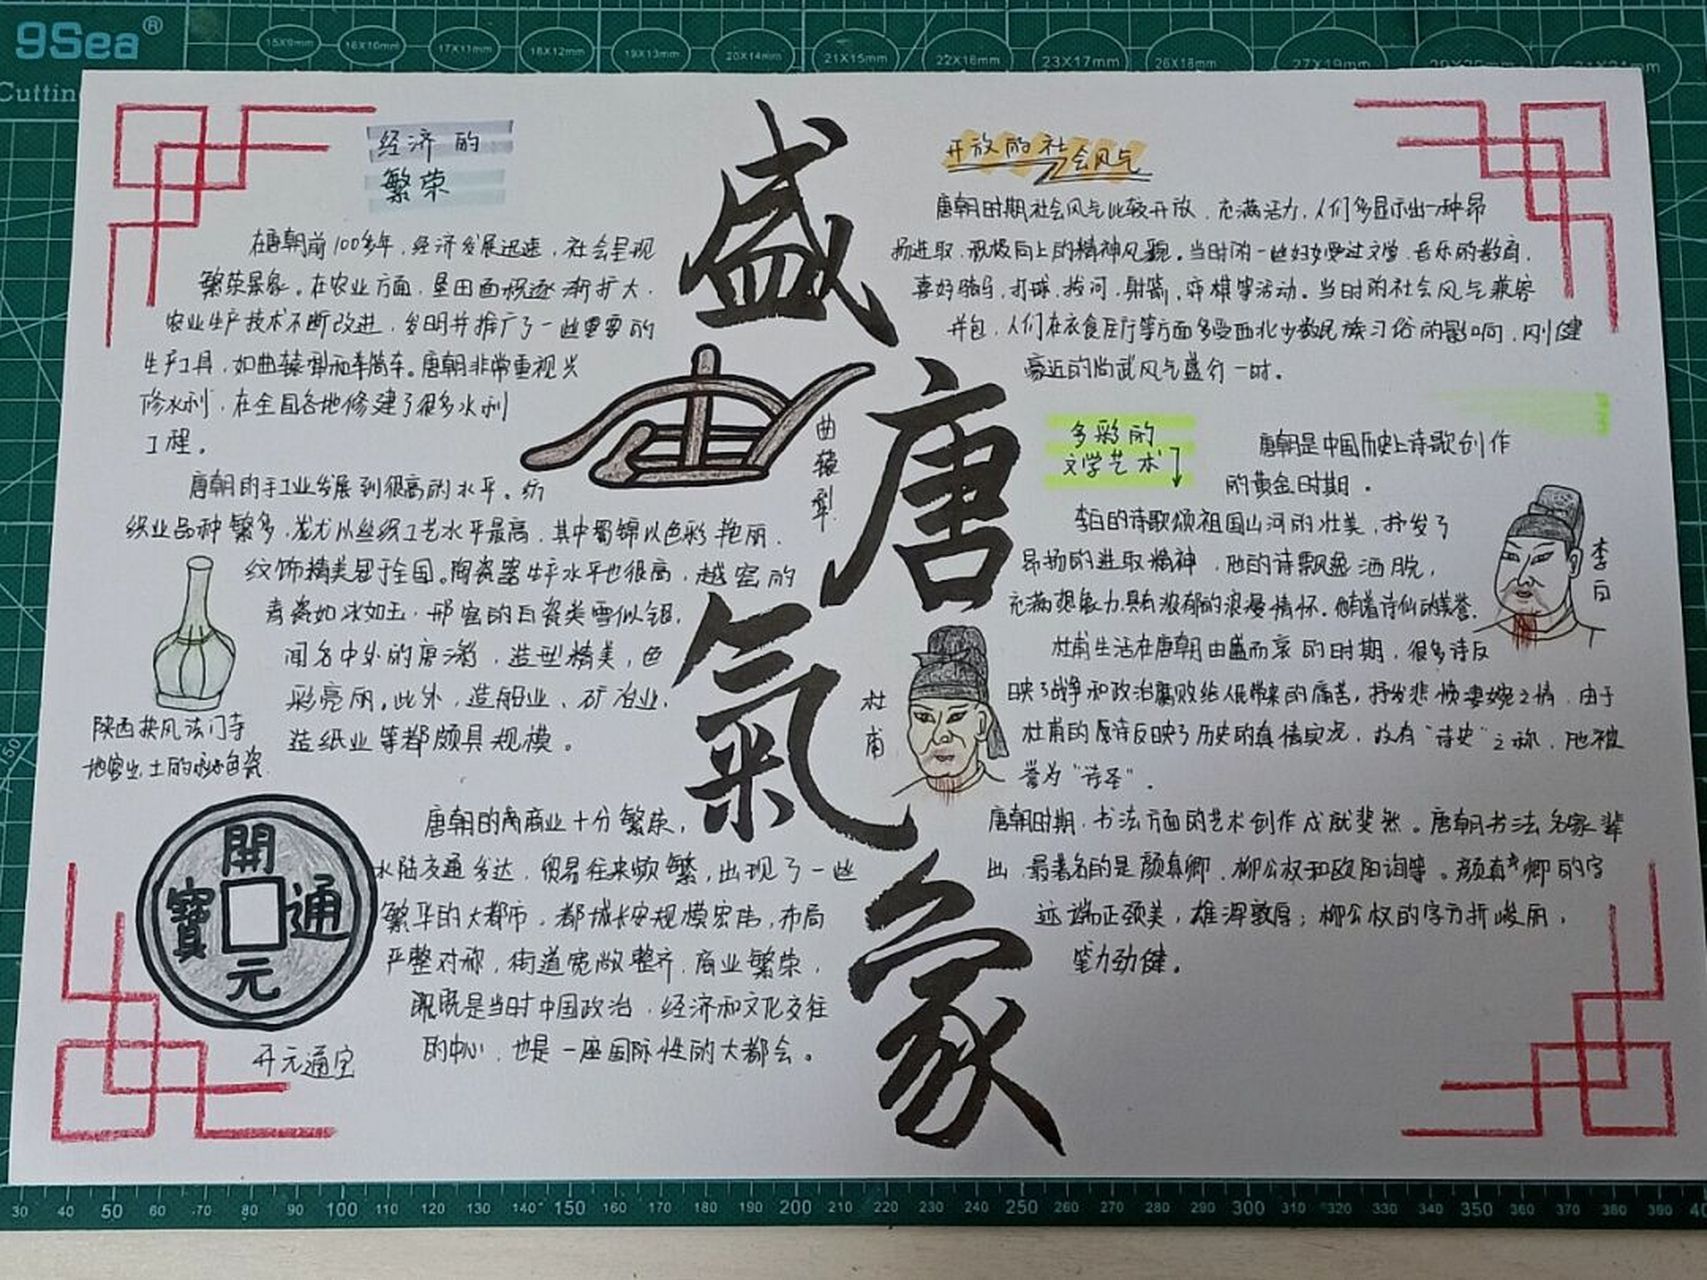 9Sea®
Cutting
15X9mm 16X10mm 17X11mm 18X12mm 19X13mm 20X14mm 21X15mm 22X16mm 23X17mm 26X18mm 27X19mm
盛唐氣象
经济的
繁荣
在唐朝前100多年，经济发展迅速，社会呈现
繁荣景象。在农业方面，垦田面积逐渐扩大，
农业生产技术不断改进，发明并推广了一些重要的
生产工具，如曲辕犁和筒车。唐朝非常重视兴
修水利，在全国各地修建了很多水利
工程。
曲辕犁
唐朝的手工业发展到很高的水平。纺
织业品种繁多，尤以丝织工艺水平最高，其中蜀锦以色彩艳丽，
纹饰精美冠于全国。陶瓷器生产水平也很高，越窑的
青瓷如冰如玉，邢窑的白瓷类雪似银，
闻名中外的唐三彩，造型精美，色
彩亮丽。此外，造船业、矿冶业、
造纸业等都颇具规模。
陕西扶风法门寺
地宫出土的秘色瓷
唐朝的商业十分繁荣，
水陆交通发达，贸易往来频繁，出现了一些
繁华的大都市，都城长安规模宏伟，布局
严整对称，街道宽敞整齐，商业繁荣，
既是当时中国政治、经济和文化交往
的中心，也是一座国际性的大都会。
開元通寶
开元通宝
开放的社会风气
唐朝时期社会风气比较开放，充满活力，人们多显示出一种昂
扬进取、积极向上的精神风貌。当时的一些妇女受过文学、音乐的教育，
喜好骑马、打球、拔河、射箭、弈棋等活动。当时的社会风气兼容
并包，人们在衣食住行等方面多受西北少数民族习俗的影响，刚健
豪迈的尚武风气盛行一时。
多彩的
文学艺术
唐朝是中国历史上诗歌创作
的黄金时期。
李白的诗歌颂祖国山河的壮美，抒发了
昂扬的进取精神，他的诗飘逸洒脱，
充满想象力，具有浓郁的浪漫情怀。他有着诗仙的美誉。
李白
杜甫生活在唐朝由盛而衰的时期，很多诗反
映了战争和政治腐败给人民带来的痛苦，抒发悲愤凄婉之情，由于
杜甫的诗反映了历史的真情实况，故有“诗史”之称，他被
誉为“诗圣”。
杜甫
唐朝时期，书法方面的艺术创作成就斐然。唐朝书法名家辈
出，最著名的是颜真卿、柳公权和欧阳询等。颜真卿的字
端正劲美，雄浑敦厚；柳公权的字方折峻丽，
笔力劲健。
30 40 50 60 70 80 90 100 110 120 130 140 150 160 170 180 190 200 210 220 230 240 250 260 270 280 290 300 310 320 330 340 350 360 370 380 390